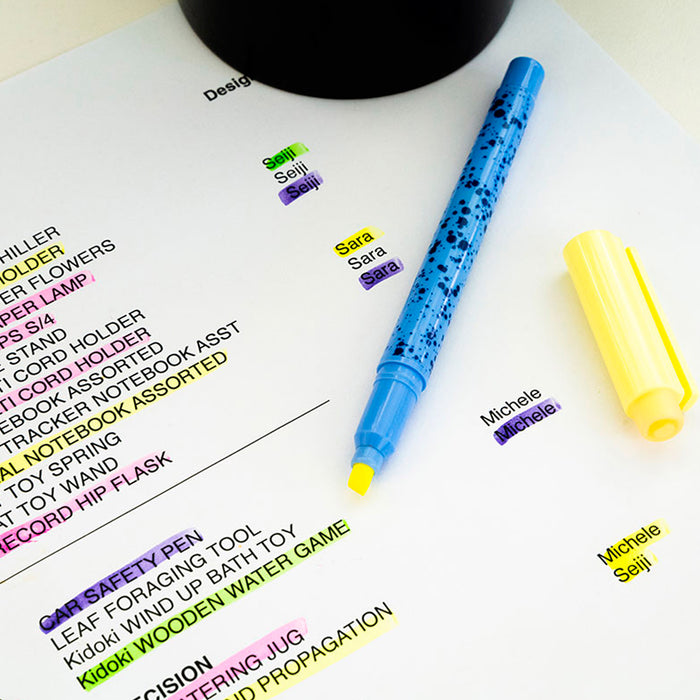 Design
Seiji
Seiji
Seiji
Sara
Sara
Sara
HILLER
HOLDER
ER FLOWERS
PER LAMP
PS S/4
E STAND
TI CORD HOLDER
TI CORD HOLDER
EBOOK ASSORTED
TRACKER NOTEBOOK ASST
AL NOTEBOOK ASSORTED
TOY SPRING
AT TOY WAND
RECORD HIP FLASK
Michele
Michele
CAR SAFETY PEN
LEAF FORAGING TOOL
Kidoki WIND UP BATH TOY
Kidoki WOODEN WATER GAME
Michele
Seiji
ECISION
TERING JUG
ND PROPAGATION